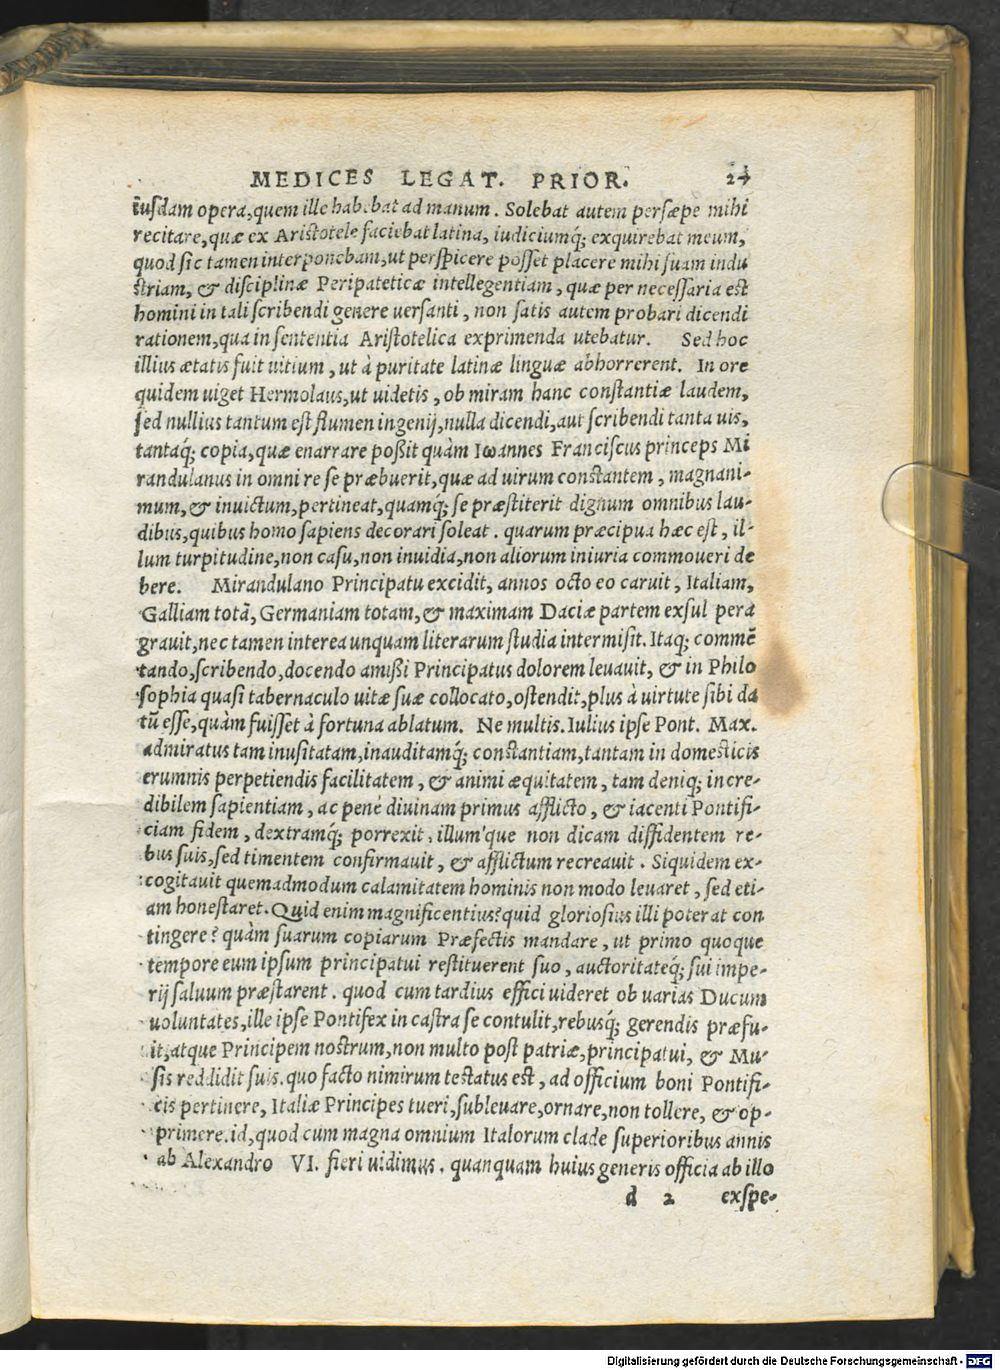 MEDICES LEGAT. PRIOR.
eiusdam opera, quem ille habebat ad manum. Solebat autem persæpe mihi
recitare, quæ ex Aristotele faciebat latina, iudiciumq́; exquirebat meum,
quod sic tamen interponebam, ut perspicere posset placere mihi suam indu
striam, & disciplinæ Peripateticæ intellegentiam, quæ per necessaria est
homini in tali scribendi genere uersanti, non satis autem probari dicendi
rationem, qua in sententia Aristotelica exprimenda utebatur. Sed hoc
illius ætatis fuit uitium, ut à puritate latinæ linguæ abhorrerent. In ore
quidem uiget Hermolaus, ut uidetis, ob miram hanc constantiæ laudem,
sed nullius tantum est flumen ingenij, nulla dicendi, aut scribendi tanta uis,
tantaq́; copia, quæ enarrare possit quàm Ioannes Franciscus princeps Mi
randulanus in omni re se præbuerit, quæ ad uirum constantem, magnani-
mum, & inuictum, pertineat, quamq́; se præstiterit dignum omnibus lau-
dibus, quibus homo sapiens decorari soleat. quarum præcipua hæc est, il-
lum turpitudine, non casu, non inuidia, non aliorum iniuria commoueri de
bere. Mirandulano Principatu excidit, annos octo eo caruit, Italiam,
Galliam totã, Germaniam totam, & maximam Daciæ partem exsul pera
grauit, nec tamen interea unquam literarum studia intermisit. Itaq; commẽ
tando, scribendo, docendo amissi Principatus dolorem leuauit, & in Philo
sophia quasi tabernaculo uitæ suæ collocato, ostendit, plus à uirtute sibi da
tũ esse, quàm fuisset à fortuna ablatum. Ne multis. Iulius ipse Pont. Max.
admiratus tam inusitatam, inauditamq́; constantiam, tantam in domesticis
erumnis perpetiendis facilitatem, & animi æquitatem, tam deniq; incre-
dibilem sapientiam, ac penè diuinam primus afflicto, & iacenti Pontifi-
ciam fidem, dextramq́; porrexit, illum'que non dicam diffidentem re-
bus suis, sed timentem confirmauit, & afflictum recreauit. Siquidem ex-
cogitauit quemadmodum calamitatem hominis non modo leuaret, sed eti-
am honestaret. Quid enim magnificentius? quid gloriosius illi poterat con
tingere? quàm suarum copiarum Præfectis mandare, ut primo quoque
tempore eum ipsum principatui restituerent suo, auctoritateq́; sui impe-
rij saluum præstarent. quod cum tardius effici uideret ob uarias Ducum
uoluntates, ille ipse Pontifex in castra se contulit, rebusq́; gerendis præfu-
it, atque Principem nostrum, non multo post patriæ, principatui, & Mu-
sis reddidit suis. quo facto nimirum testatus est, ad officium boni Pontifi-
cis pertinere, Italiæ Principes tueri, subleuare, ornare, non tollere, & op-
primere. id, quod cum magna omnium Italorum clade superioribus annis
ab Alexandro VI. fieri uidimus. quanquam huius generis officia ab illo
d 2 exspe-
Digitalisierung gefördert durch die Deutsche Forschungsgemeinschaft - DFG